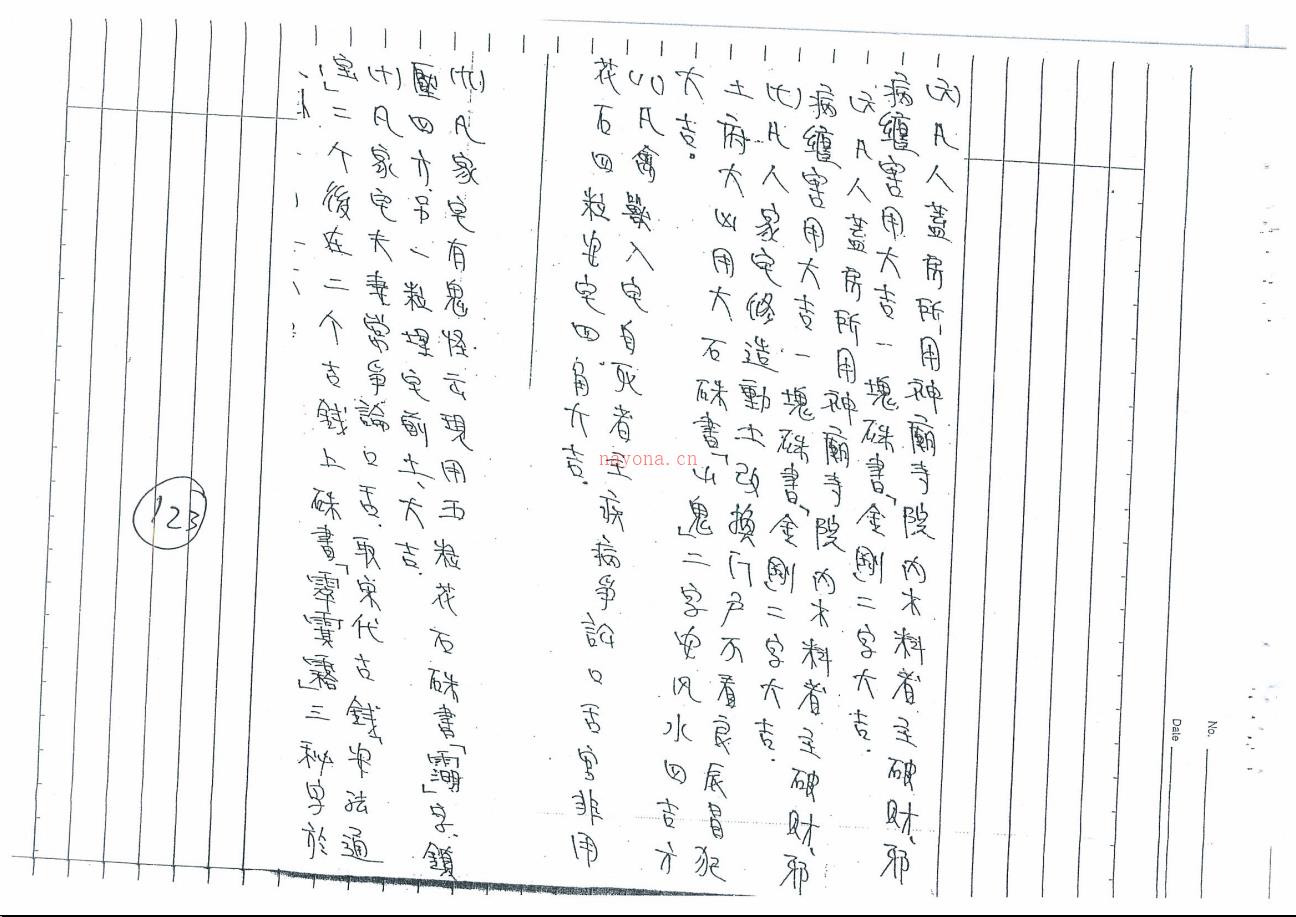 (六)凡人蓋房所用神廟寺院內木料者主破財、邪
病纏害用大吉一塊硃書「金剛二字大吉.
(六)凡人蓋房所用神廟寺院內木料者主破財、邪
病纏害用大吉一塊硃書「金剛二字大吉.
(七)凡人家宅修造動土改換门户不看良辰冒犯
土府大凶用大石硃書「山鬼」二字安风水四吉方
大吉.
(八)凡禽獸入宅自死者主疾病爭論口舌官非用
花石四粒安宅四角大吉.
(九)凡家宅有鬼怪云現用五粒花石硃書「」字.鎖
壓四方吊一粒埋宅前土、大吉.
(十)凡家宅夫妻常爭論口舌.取宋代古錢安法通
宝」二个後在二个古錢上硃書「」三秘字於
123
nayona.cn
No.
Date